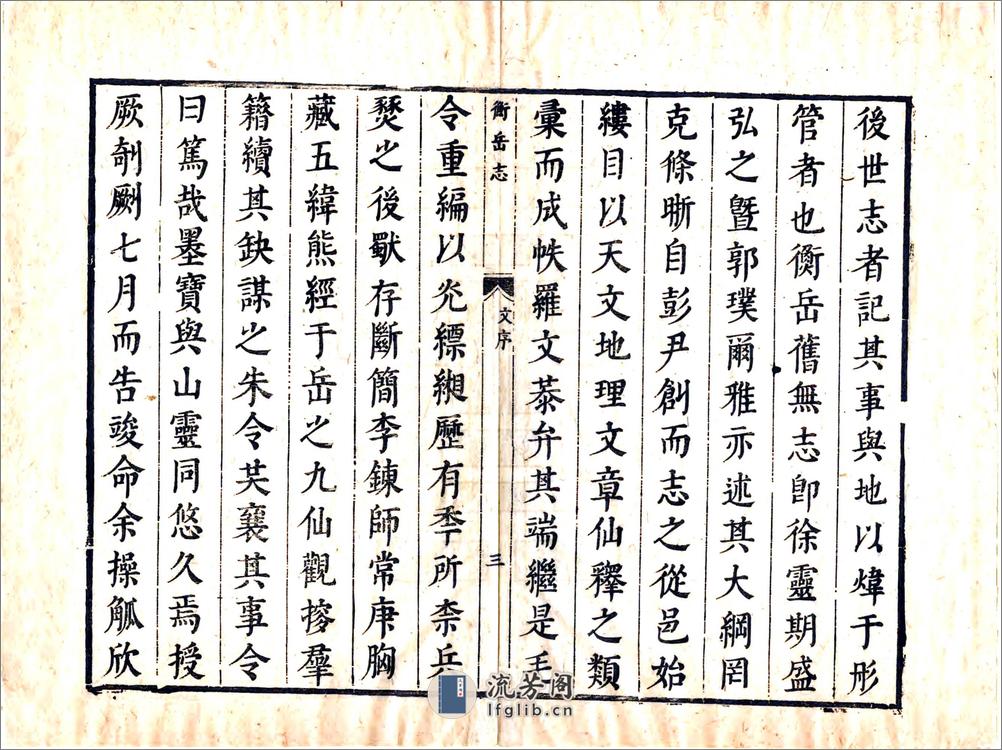 後世志者記其事與地以煒于形
管者也衡岳舊無志卽徐靈期盛
弘之曁郭璞爾雅亦述其大綱罔
克條晰自彭尹創而志之從邑始
縷目以天文地理文章仙釋之類
彚而成帙羅文恭弁其端繼是王
衡岳志
文序
三
令重編以光縹緗歷有季所柰兵
燹之後獸存斷簡李鍊師常庚胸
藏五緯熊經于岳之九仙觀搈羣
籍續其缺謀之朱令共襄其事令
曰篤哉墨寶與山靈同悠久焉授
厥剞劂七月而告竣命余操觚欣
流芳阁
lfglib.cn